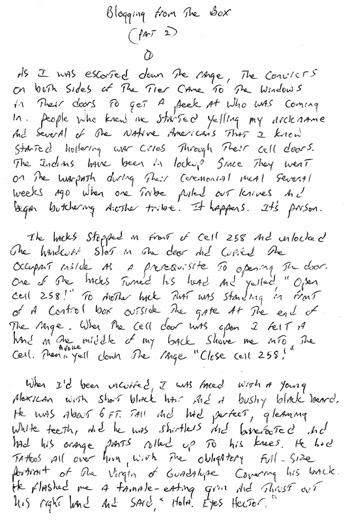 Blogging from The Box
(Part 2)
①
As I was escorted down the range, The convicts
on both sides of The Tier came To The windows
in Their doors To get A peek at who was coming
in. People who knew me started yelling my nickname
and several of the Native Americans That I knew
started hollering war cries Through Their cell doors.
The Indians have been in lockup since They went
on The warpath during Their ceremonial meal several
weeks ago when one Tribe pulled out knives and
began butchering another tribe. It happens. It's prison.
The hacks stopped in front of cell 258 and unlocked
The handcuff slot in The door and cuffed The
occupant inside as a prerequisite to opening The door.
One of The hacks Turned his head and yelled, "Open
cell 258!" To another hack That was standing in front
of A control box outside The gate at The end of
The range. When The cell door was open I felt A
hand in The middle of my back shove me into The
cell. Then a yell down The range "Close cell 258!"
When I'd been uncuffed, I was faced with a young
Mexican with short black hair and a bushy black beard.
He was about 6 FT. Tall and had perfect, gleaming
white teeth, and he was shirtless and barefooted and
had his orange pants rolled up To his knees. He had
Tattoos all over him, with The obligatory full-size
portrait of The Virgin of Guadalupe covering his back.
He flashed me a tamale-eating grin and Thrust out
his right hand and said, "Hola. Eyes Hector."